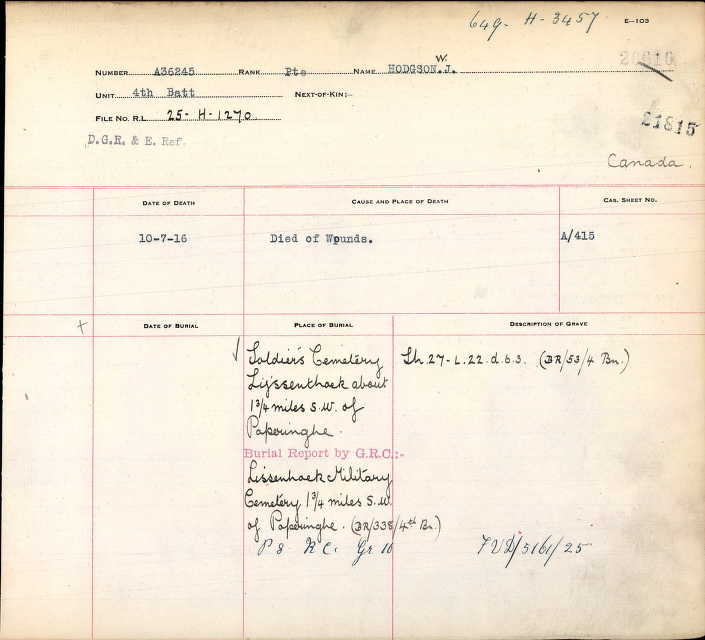 649- H-3457 E-103
NUMBER A36245 RANK Pte NAME HODGSON.W.J.
UNIT 4th Batt NEXT-OF-KIN:-
21815
FILE NO. R.L. 25-H-1270
D.G.R. & E. Ref.
Canada.
DATE OF DEATH CAUSE AND PLACE OF DEATH CAS. SHEET NO.
10-7-16 Died of Wounds. A/415
+ DATE OF BURIAL PLACE OF BURIAL DESCRIPTION OF GRAVE
√ Soldier's Cemetery Sh.27-L.22.d.6.3. (BR/53/4 Bn.)
Lijssenthoek about
1¾ miles S.W. of
Poperinghe.
Burial Report by G.R.C.:-
Lissenhoek Military
Cemetery 1¾ miles S.W.
of Poperinghe. (BR/338/4th Bn.)
P 8 R C. Gr 10 7VD/5161/25